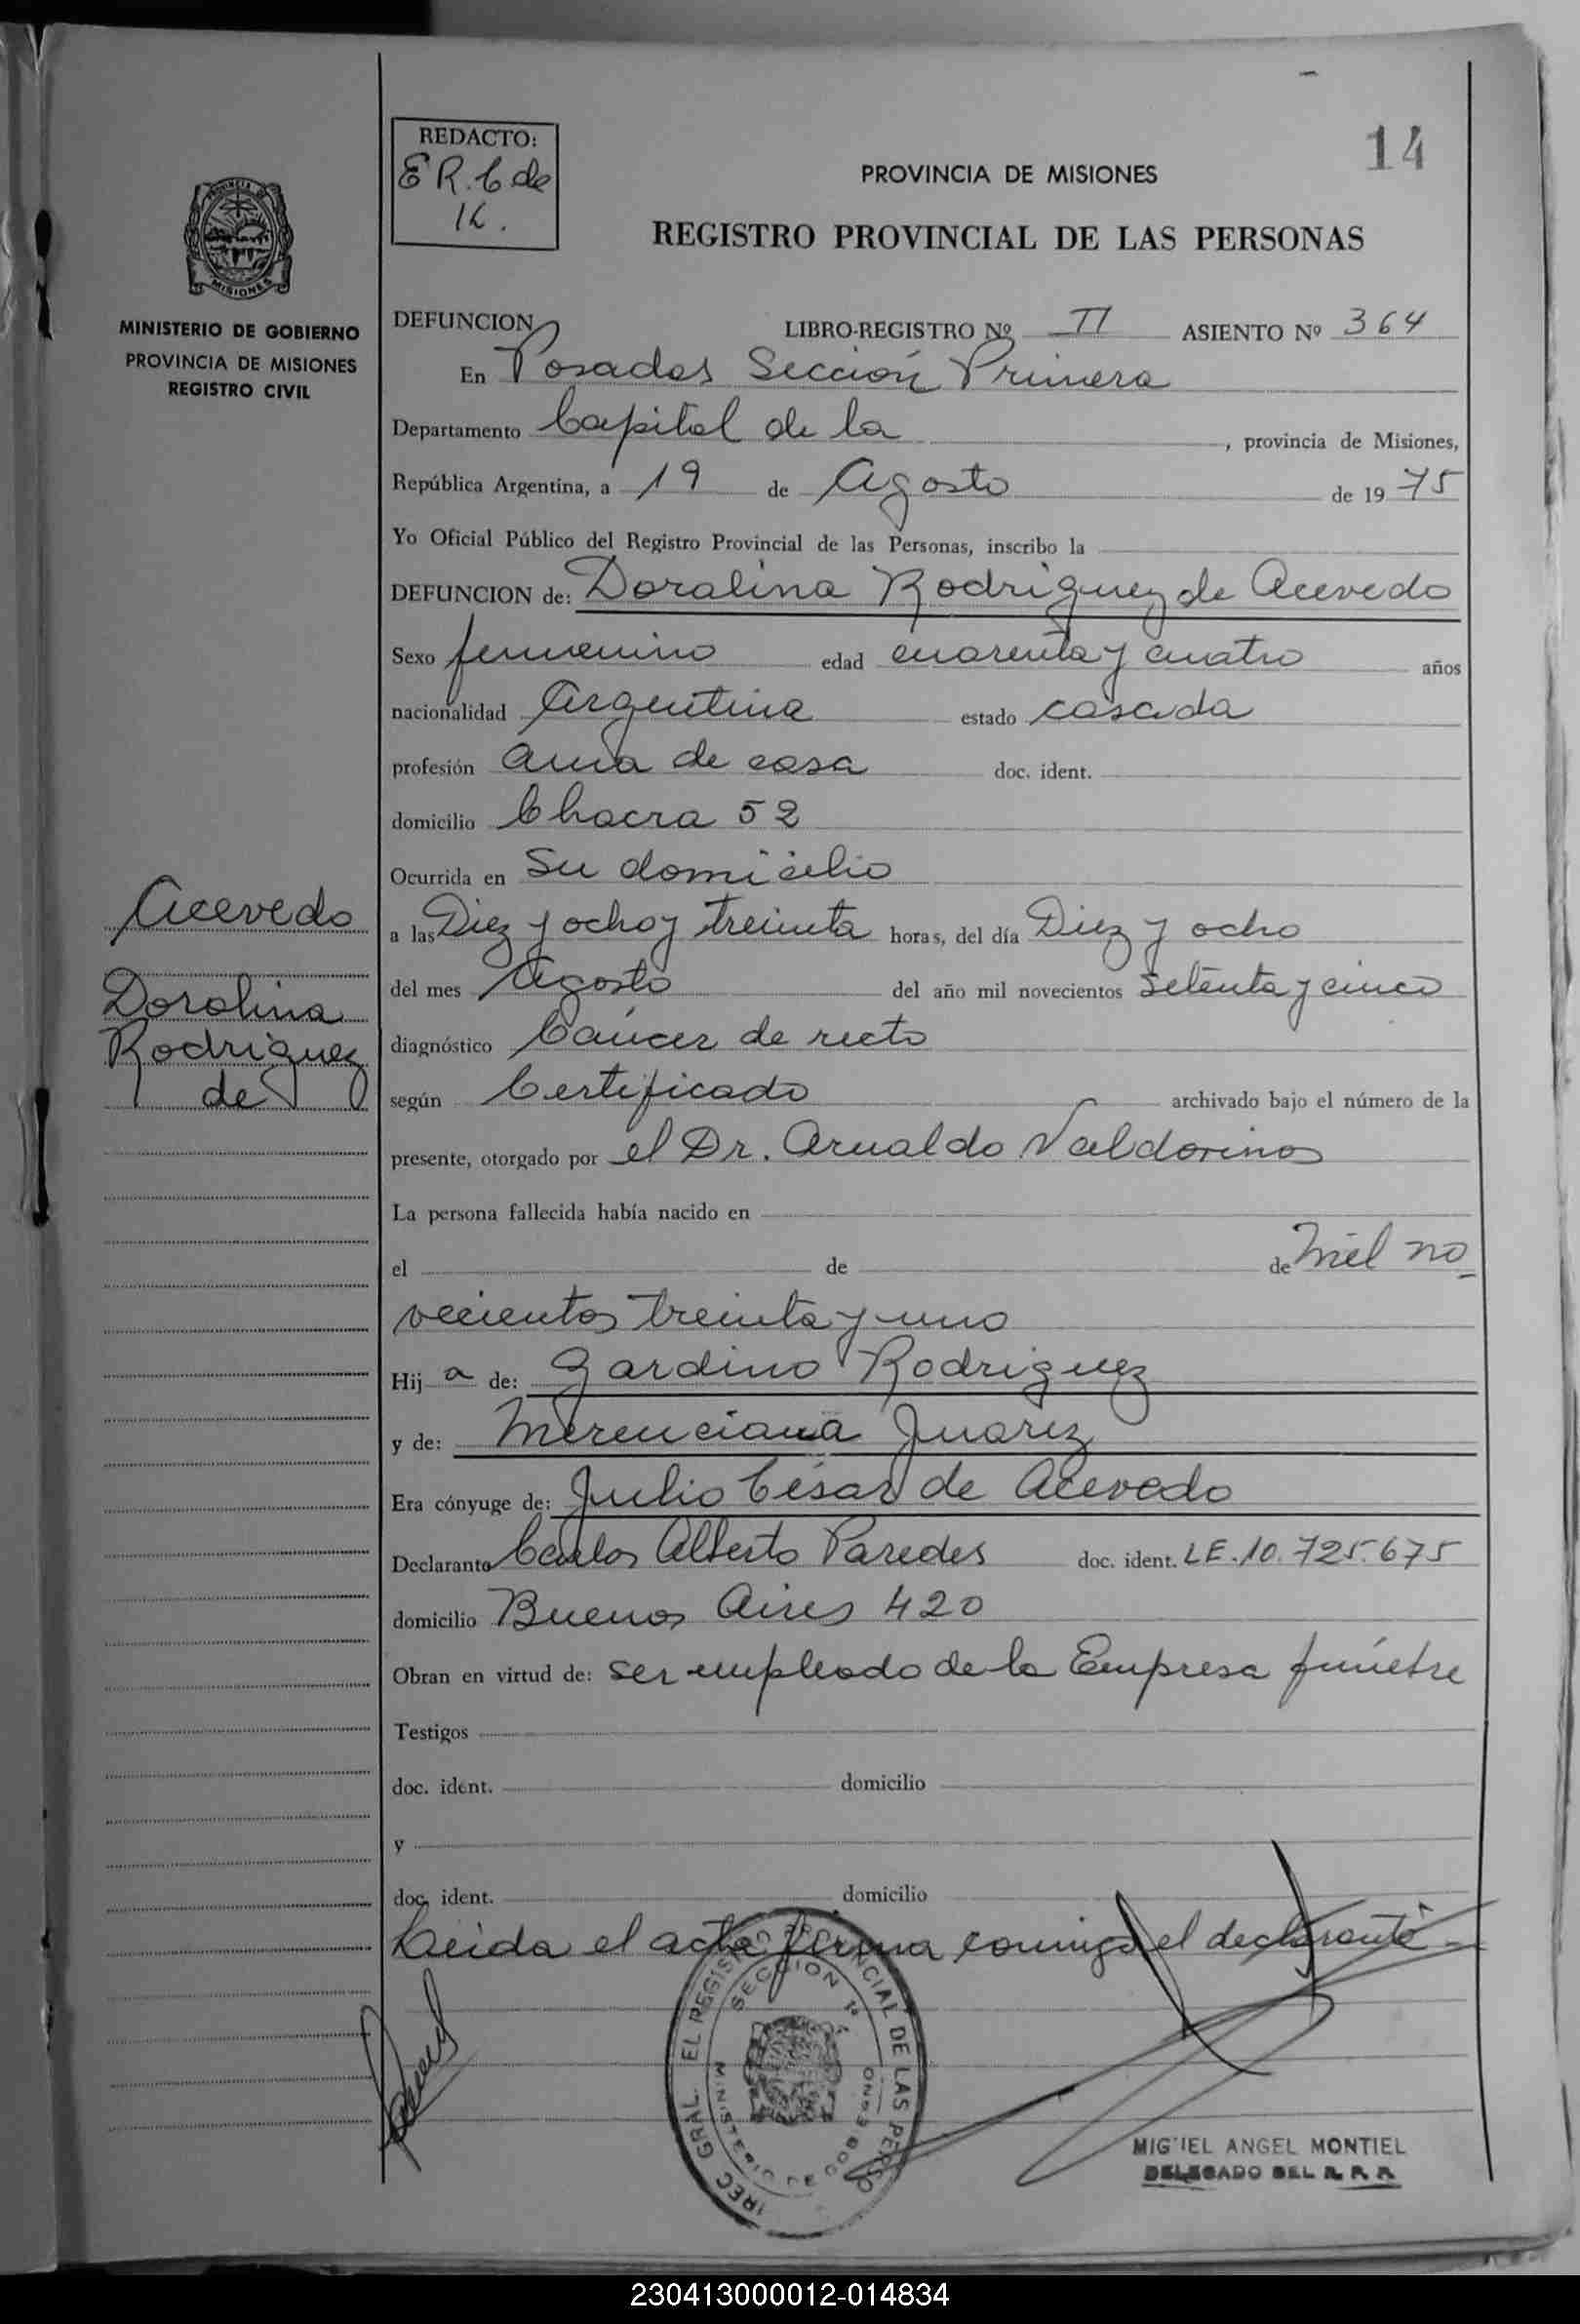 14
REDACTO:
E R. C de
K.
PROVINCIA DE MISIONES
REGISTRO PROVINCIAL DE LAS PERSONAS
MISIONES
MINISTERIO DE GOBIERNO
PROVINCIA DE MISIONES
REGISTRO CIVIL
DEFUNCION
LIBRO-REGISTRO Nº II ASIENTO Nº 364
En Posadas Sección Primera
Departamento Capital de la , provincia de Misiones,
República Argentina, a 19 de Agosto de 19 75
Yo Oficial Público del Registro Provincial de las Personas, inscribo la
DEFUNCION de: Doralina Rodriguez de Acevedo
Sexo femenino edad cuarenta y cuatro años
nacionalidad Argentina estado casada
profesión ama de casa doc. ident.
domicilio Chacra 52
Ocurrida en su domicilio
a las Diez y ocho y treinta horas, del día Diez y ocho
del mes Agosto del año mil novecientos setenta y cinco
diagnóstico Cáncer de recto
según Certificado archivado bajo el número de la
presente, otorgado por el Dr. Arnaldo Valdovinos
La persona fallecida había nacido en
el de de Mil no_
vecientos treinta y uno
Hij a de: Gardino Rodriguez
y de: Merenciana Juarez
Era cónyuge de: Julio César de Acevedo
Declarante Carlos Alberto Paredes doc. ident. LE. 10.725.675
domicilio Buenos Aires 420
Obran en virtud de: ser empleado de la Empresa fúnebre
Testigos
doc. ident. domicilio
y
doc. ident. domicilio
Leida el acta firma conmigo el declarante
Acevedo
Doralina
Rodriguez
de
SECCION 1ª
MINISTERIO DE GOBIERNO
MIGUEL ANGEL MONTIEL
DELEGADO DEL R. P. P.
230413000012-014834